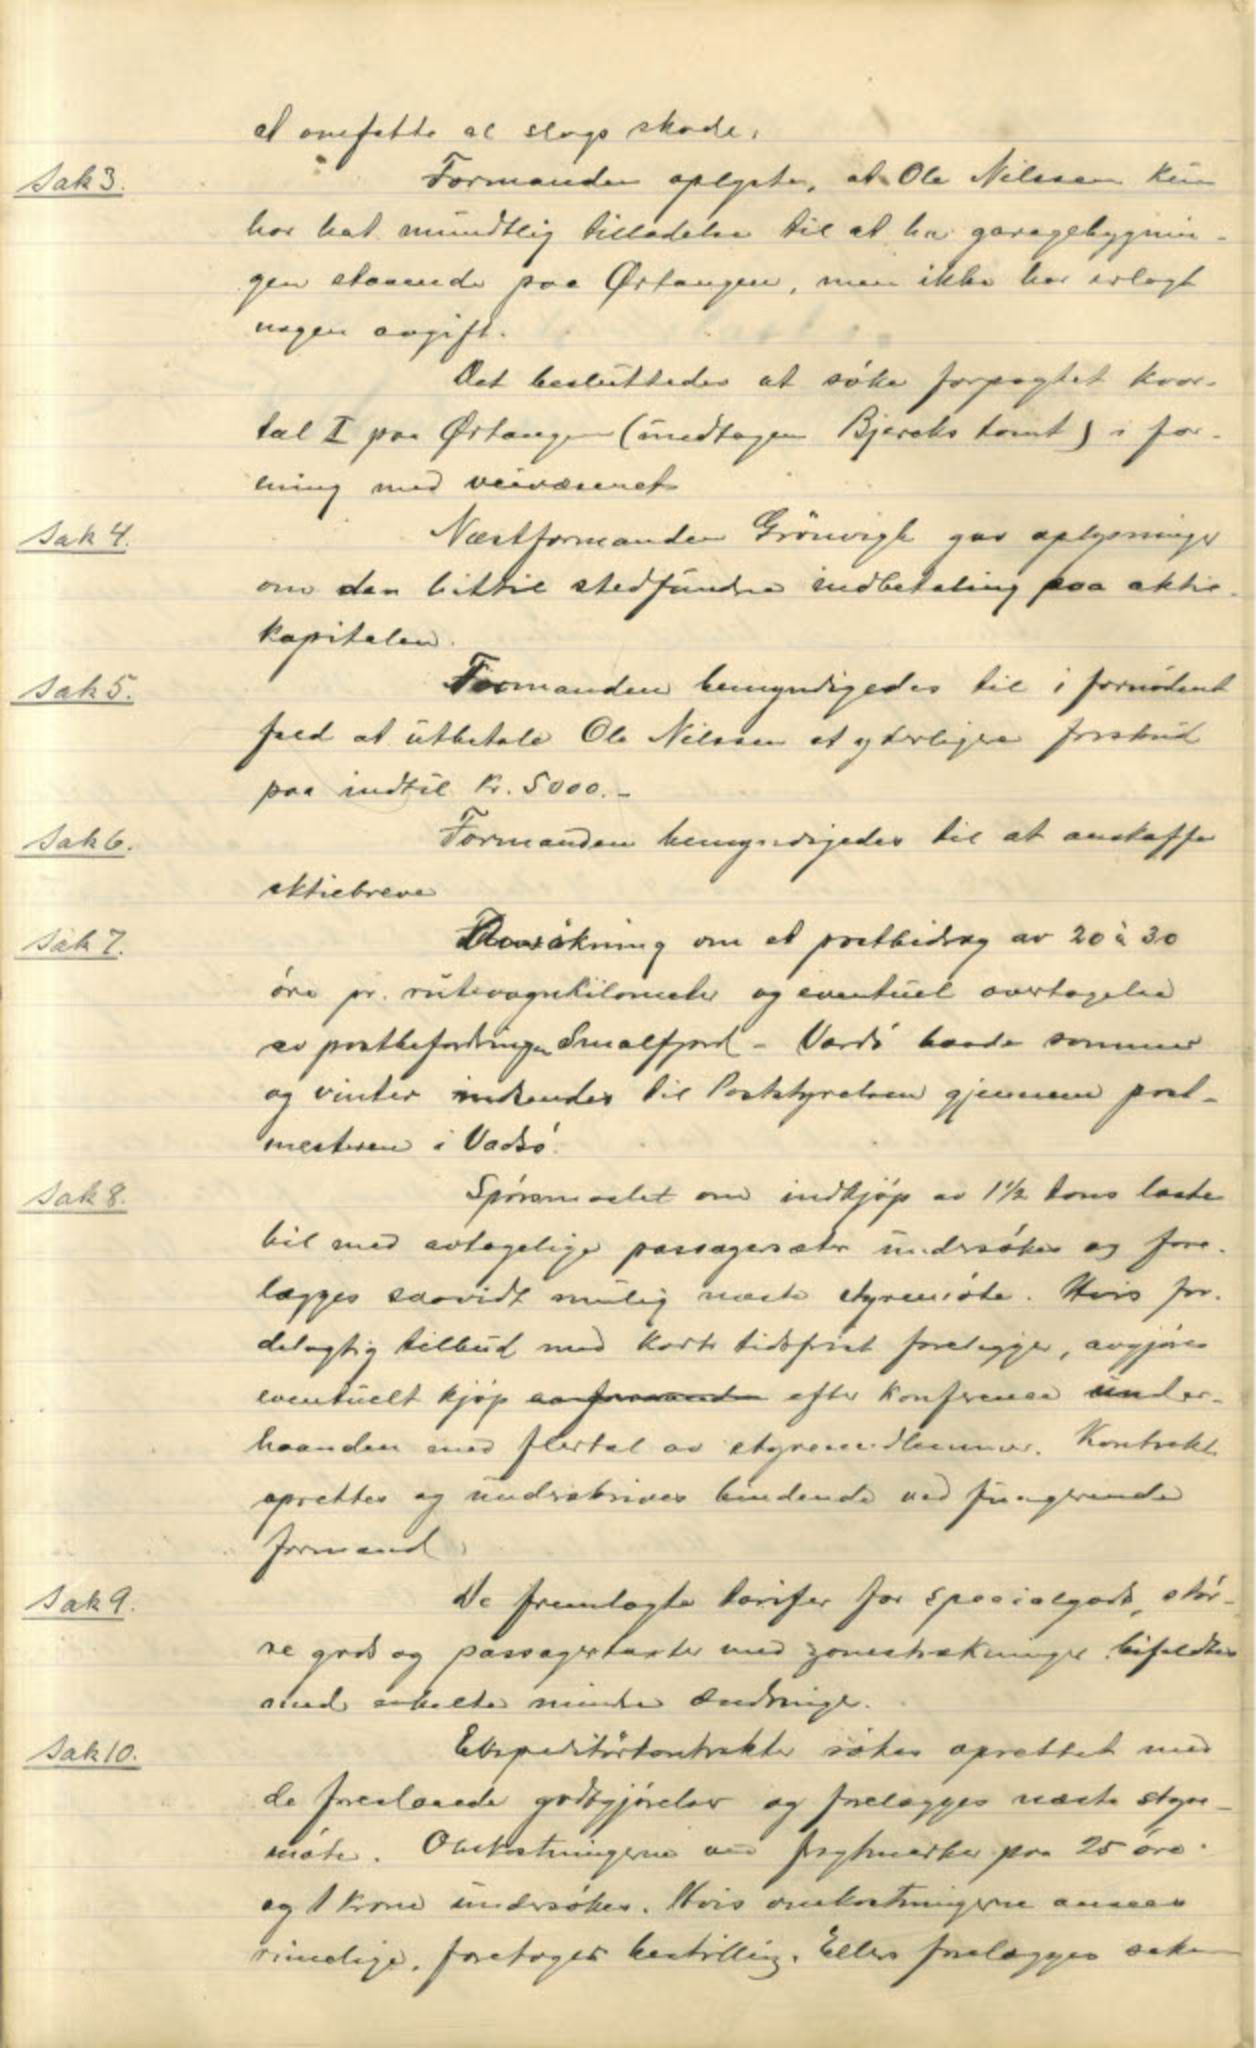 at omfatte al slags skade.
Sak 3. Formanden oplyste, at Ole Nilssen kun
har hat mundtlig tilladelse til at ha garagebygnin-
gen staaende paa Ørtangen, men ikke har erlagt
nogen avgift.
Det besluttedes at søke forpagtet kvar-
tal I paa Ørtangen (undtagen Bjercks tomt) i for-
ening med veivæsenet
Sak 4. Næstformanden Grönvigh gav oplysninger
om den hittil stedfundne indbetaling paa aktie-
kapitalen.
Sak 5. Formanden bemyndigedes til i fornødent
fald at utbetale Ole Nilssen et yderligere forskud
paa indtil kr. 5000.-
Sak 6. Formanden bemyndigedes til at anskaffe
aktiebreve
Sak 7. Ansøkning om et postbidrag av 20 à 30
øre pr. rutevognkilometer og eventuel overtagelse
av postbefordringen Smalfjord - Vardø baade sommer
og vinter indsendes til Poststyrelsen gjennem post-
mesteren i Vadsø.
Sak 8. Spørsmaalet om indkjøp av 1½ tons laste
bil med avtagelige passagersæter undersøkes og fore-
lægges saavidt mulig næste styremøte. Hvis for-
delagtig tilbud med kort tidsfrist foreligger, avgjøres
eventuelt kjøp efter konferense under-
haanden med flertal av styremedlemmer. Kontrakt
oprettes og underskrives bindende ved fungerende
formand.
Sak 9. De fremlagte tarifer for specialgods, stør-
re gods og passagertakster med zonestrækninger bifaldtes
med enkelte mindre ændringer.
Sak 10. Ekspeditørkontrakter søkes oprettet med
de foreslaaede godtgjørelser og forelægges næste styre-
møte. Omkostningerne ved fragtmerker paa 25 øre
og 1 krone undersøkes. Hvis omkostningerne ansees
rimelige, foretages bestilling. Ellers forelægges saken